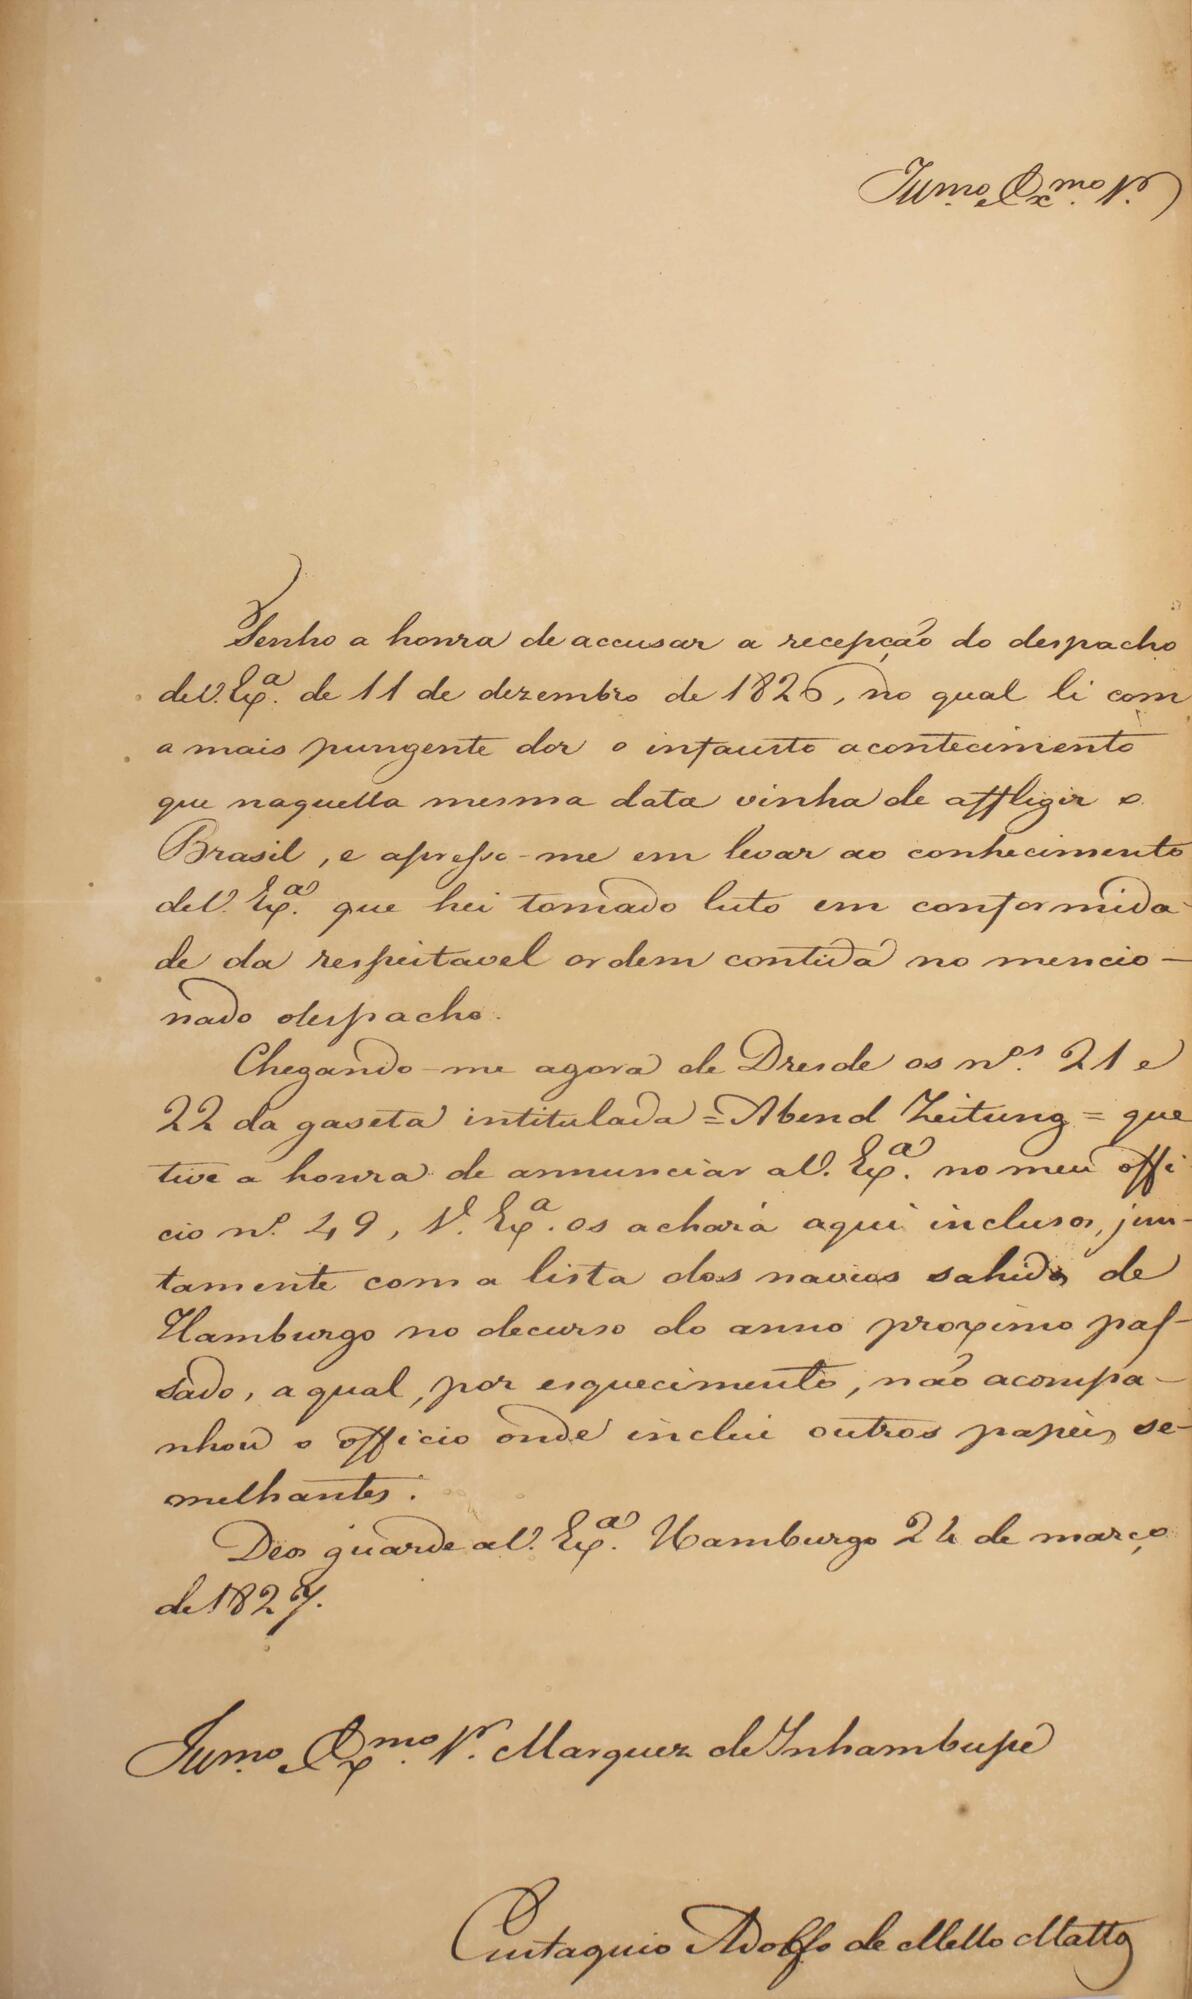 Illmo. e Exmo. Sr.
Tenho a honra de accusar a recepção do despacho
de V. Exa. de 11 de dezembro de 1826, no qual li com
a mais pungente dor o infausto acontecimento
que naquella mesma data vinha de affligir o
Brasil, e apresso-me em levar ao conhecimento
de V. Exa. que hei tomado luto em conformida-
de da respeitavel ordem contida no mencio-
nado despacho.
Chegando-me agora de Dresde os nos. 21 e
22 da gaseta intitulada = Abend Zeitung = que
tive a honra de annunciar a V. Exa. no meu offi
cio no. 49, V. Exa. os achará aqui inclusos, jun-
tamente com a lista dos navios sahidos de
Hamburgo no decurso do anno proximo pas-
sado, a qual, por esquecimento, não acompa-
nhou o officio onde inclui outros papeis se-
melhantes.
Deos guarde a V. Exa. Hamburgo 24 de março
de 1827.
Illmo. e Exmo. Sr. Marquez de Inhambupe
Eustaquio Adolfo de Mello Mattos